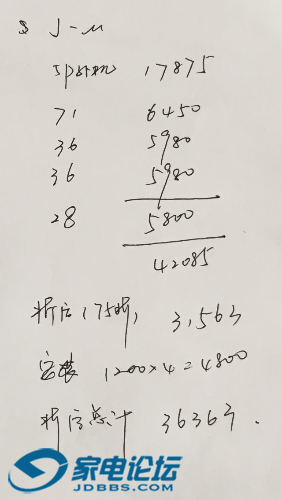 J-M
5p外机 17875
71 6450
36 5980
36 5980
28 5800
42085
折后(75折) 3.1563
安装 1200×4=4800
折后总计 36363.
家电论坛
JDBBS.COM